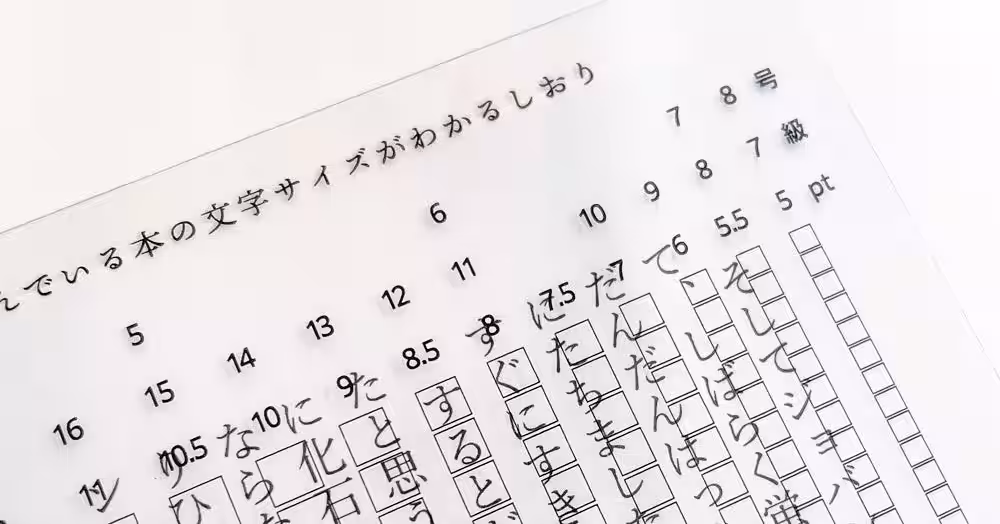 んでいる本の文字サイズがわかるしおり
5 6 7 8 号
16 15 14 13 12 11 10 9 8 7 級
11 10.5 10 9 8.5 8 7.5 7 6 5.5 5 pt
そしてジョバ
て、しばらく蛍
だんだんはっ
にたちました
すぐにすき
すると
たと思う
に化石
なら
ひ